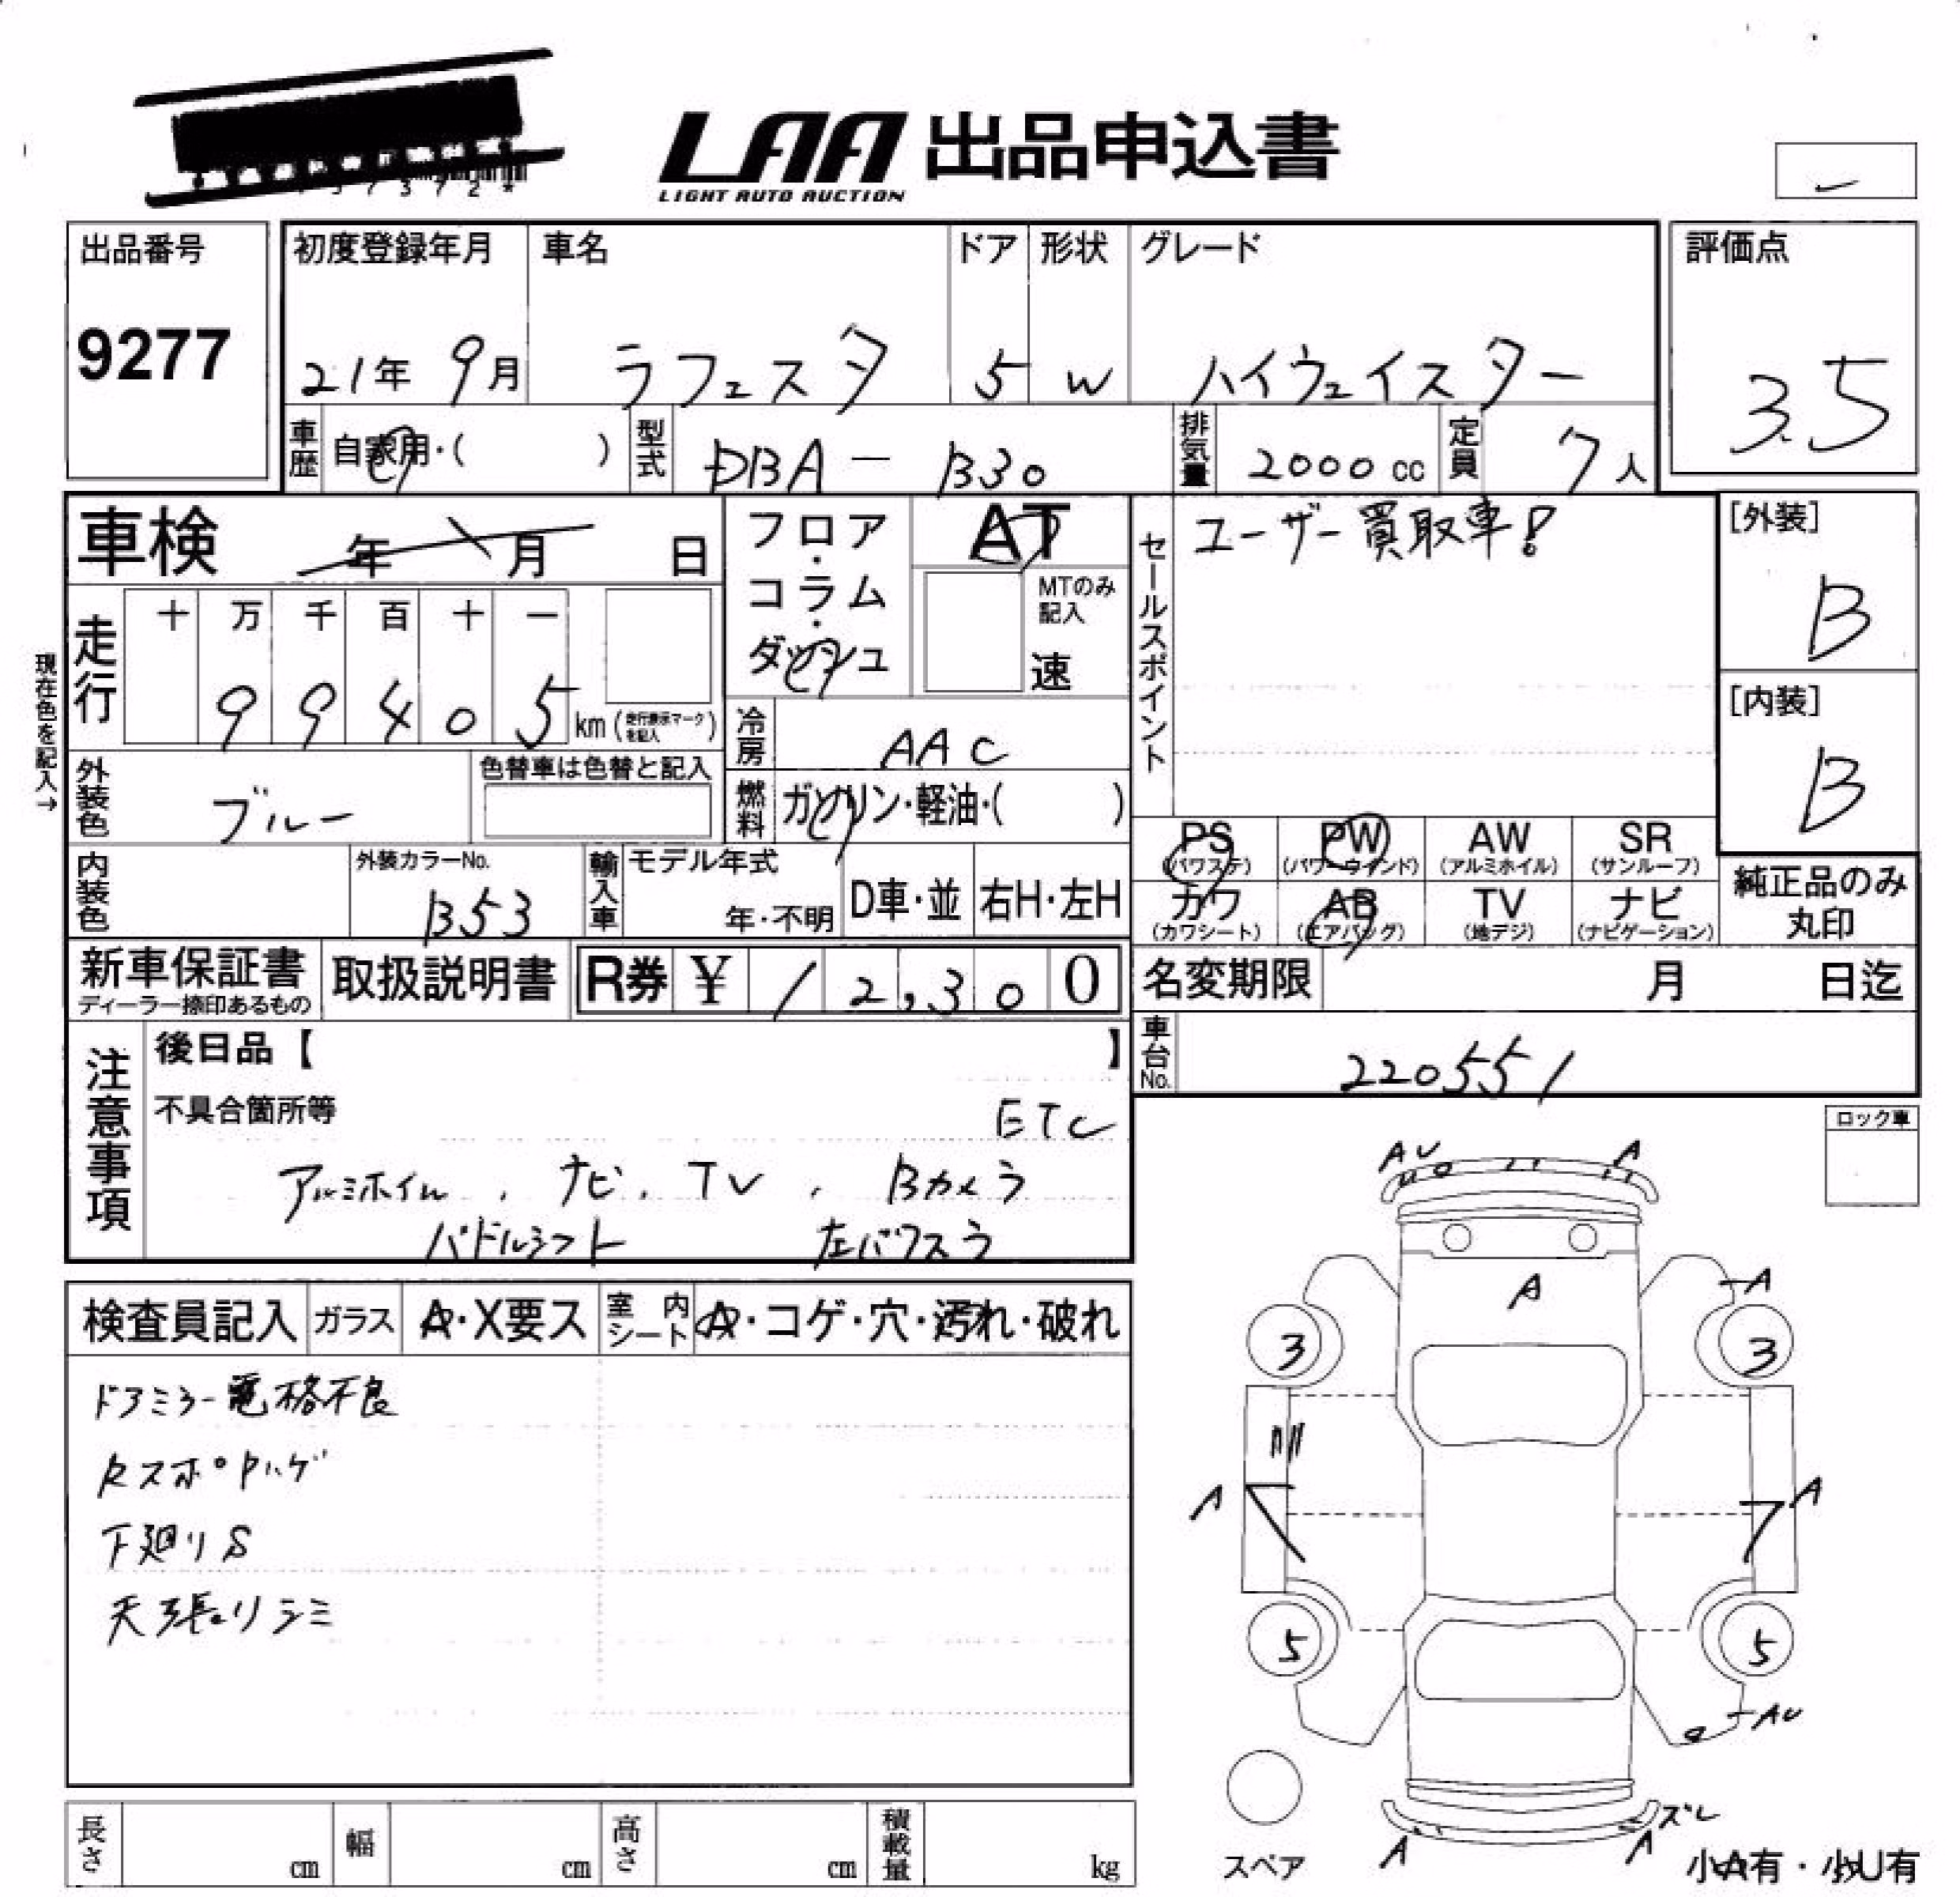 LAA 出品申込書
LIGHT AUTO AUCTION
出品番号
9277
初度登録年月
21年 9月
車名
ラフェスタ
ドア
5
形状
W
グレード
ハイウェイスター
評価点
3.5
車歴 自家用・( )
型式 DBA - B30
排気量 2000 cc
定員 7 人
車検 年 月 日
フロア・コラム・ダッシュ
AT
MTのみ記入
速
セールスポイント
ユーザー買取車!
[外装]
B
[内装]
B
現在色を記入→
走行 十 万 千 百 十 一
9 9 4 0 5 km (走行表示マークを記入)
冷房 AAC
外装色 ブルー
色替車は色替と記入
燃料 ガソリン・軽油・( )
PS (パワステ) PW (パワーウインド) AW (アルミホイル) SR (サンルーフ)
カワ (カワシート) AB (エアバッグ) TV (地デジ) ナビ (ナビゲーション)
純正品のみ丸印
内装色
外装カラーNo.
B53
輸入車 モデル年式
年・不明
D車・並 右H・左H
新車保証書
ディーラー捺印あるもの
取扱説明書
R券 ¥ 12,300
名変期限 月 日迄
車台No. 220551
注意事項
後日品【 】
不具合箇所等
ETC
アルミホイル、ナビ、TV、Bカメラ
パドルシフト 左パワスラ
ロック車
検査員記入 ガラス A・X要ス 室内シート A・コゲ・穴・汚れ・破れ
ドアミラー電格不良
RスポPハゲ
下廻りS
天張りシミ
AU A
A
A
3 3
A A
5 5
AU
ズレ
A A
スペア
小A有・小U有
長さ cm 幅 cm 高さ cm 積載量 kg